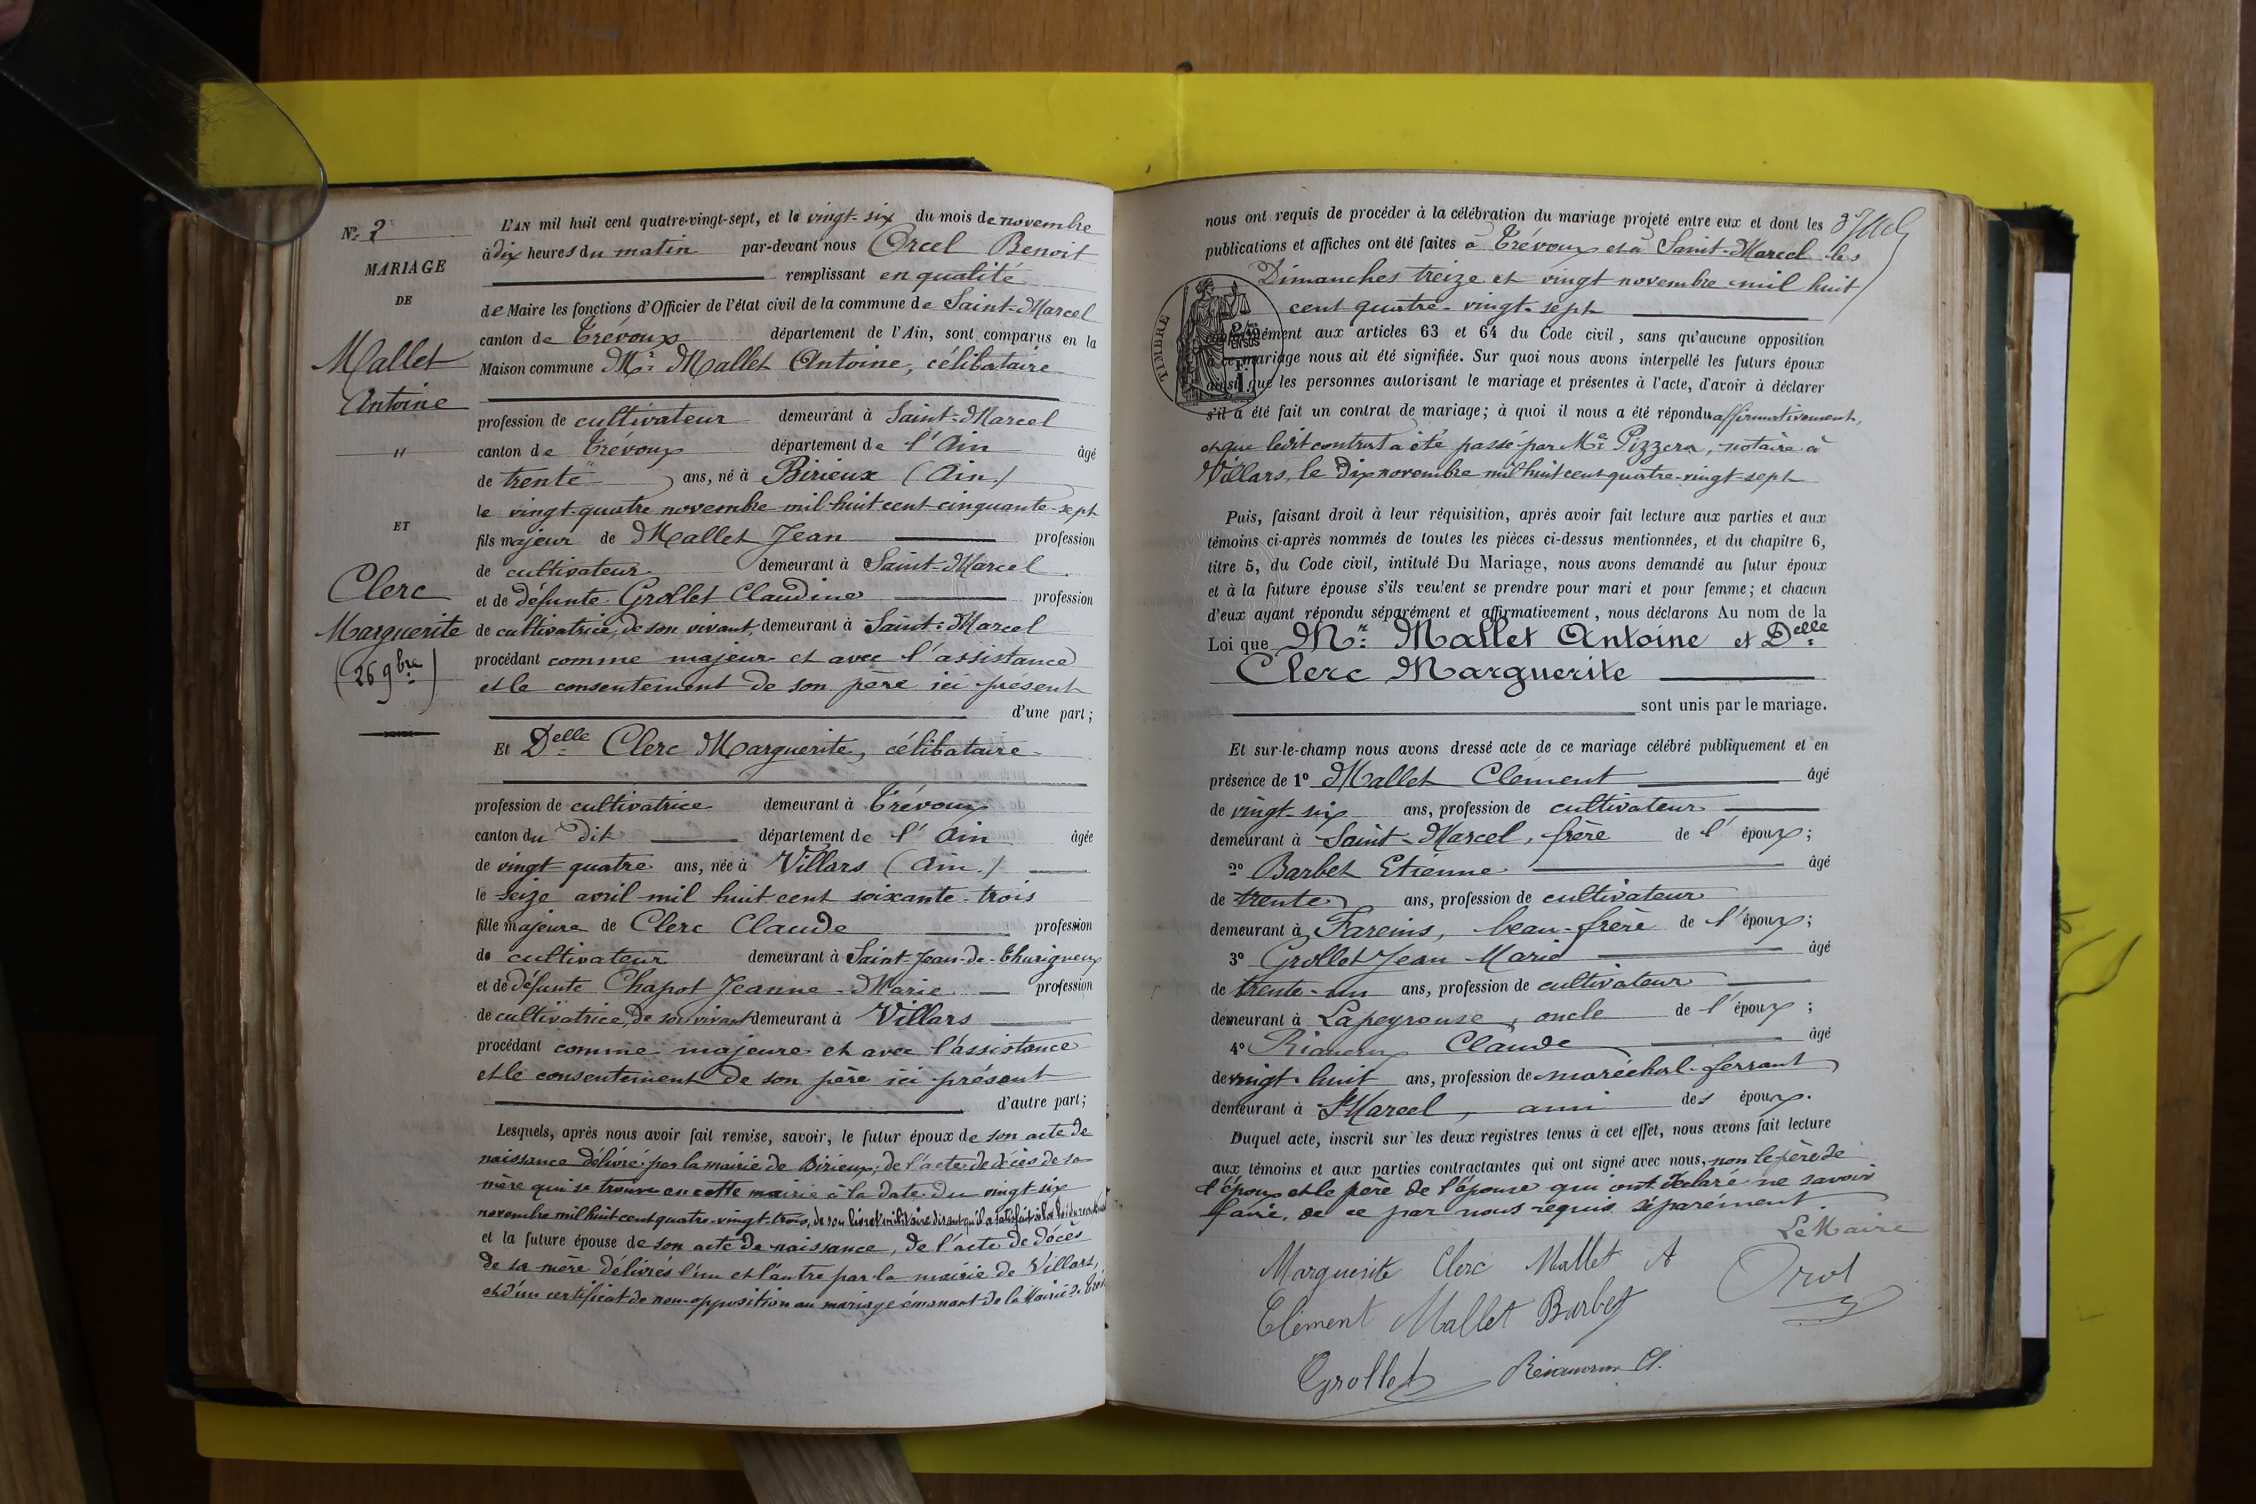 N° 2
MARIAGE
DE
Mallet
Antoine
"
ET
Clerc
Marguerite
(26 9bre)
L'AN mil huit cent quatre-vingt-sept, et le vingt-six du mois de novembre
à dix heures du matin par-devant nous Orcel Benoit
remplissant en qualité
de Maire les fonctions d'Officier de l'état civil de la commune de Saint-Marcel
canton de Trévoux département de l'Ain, sont comparus en la
Maison commune Mr Mallet Antoine, célibataire
profession de cultivateur demeurant à Saint-Marcel
canton de Trévoux département de l'Ain âgé
de trente ans, né à Birieux (Ain)
le vingt-quatre novembre mil huit cent cinquante-sept
fils majeur de Mallet Jean profession
de cultivateur demeurant à Saint-Marcel
et de défunte Grollet Claudine profession
de cultivatrice, de son vivant, demeurant à Saint-Marcel
procédant comme majeur et avec l'assistance
et le consentement de son père ici présent
d'une part;
Et Delle Clerc Marguerite, célibataire
profession de cultivatrice demeurant à Trévoux
canton du dit département de l'Ain âgée
de vingt quatre ans, née à Villars (Ain.)
le seize avril mil huit cent soixante-trois
fille majeure de Clerc Claude profession
de cultivateur demeurant à Saint-Jean-de-Thurigneux
et de défunte Chapot Jeanne-Marie profession
de cultivatrice, de son vivant demeurant à Villars
procédant comme majeure et avec l'assistance
et le consentement de son père ici présent
d'autre part;
Lesquels, après nous avoir fait remise, savoir, le futur époux de son acte de
naissance délivré par la mairie de Birieux; de l'acte de décès de sa
mère qui se trouve en cette mairie à la date du vingt-six
novembre mil huit cent quatre-vingt-trois, de son livret militaire disant qu'il a satisfait à la loi du recrutement
et la future épouse de son acte de naissance, de l'acte de décès
de sa mère délivrés l'un et l'autre par la mairie de Villars,
et d'un certificat de non-opposition au mariage émanant de la Mairie de
nous ont requis de procéder à la célébration du mariage projeté entre eux et dont les
publications et affiches ont été faites à Trévoux et à Saint-Marcel les
Dimanches treize et vingt novembre mil huit
cent quatre-vingt-sept
TIMBRE
conformément aux articles 63 et 64 du Code civil, sans qu'aucune opposition
à ce mariage nous ait été signifiée. Sur quoi nous avons interpellé les futurs époux
ainsi que les personnes autorisant le mariage et présentes à l'acte, d'avoir à déclarer
s'il a été fait un contrat de mariage; à quoi il nous a été répondu affirmativement,
et que ledit contrat a été passé par Me Pizzera, notaire à
Villars, le dix novembre mil huit cent quatre-vingt-sept
Puis, faisant droit à leur réquisition, après avoir fait lecture aux parties et aux
témoins ci-après nommés de toutes les pièces ci-dessus mentionnées, et du chapitre 6,
titre 5, du Code civil, intitulé Du Mariage, nous avons demandé au futur époux
et à la future épouse s'ils veulent se prendre pour mari et pour femme; et chacun
d'eux ayant répondu séparément et affirmativement, nous déclarons Au nom de la
Loi que Mr Mallet Antoine et Delle
Clerc Marguerite
sont unis par le mariage.
Et sur-le-champ nous avons dressé acte de ce mariage célébré publiquement et en
présence de 1° Mallet Clément âgé
de vingt-six ans, profession de cultivateur
demeurant à Saint-Marcel, frère de l'époux;
2° Barbet Etienne âgé
de trente ans, profession de cultivateur
demeurant à Fareins, beau-frère de l'époux;
3° Grollet Jean-Marie âgé
de trente-un ans, profession de cultivateur
demeurant à Lapeyrouse, oncle de l'époux;
4° Claude âgé
de vingt-huit ans, profession de maréchal-ferrant
demeurant à St Marcel, ami des époux.
Duquel acte, inscrit sur les deux registres tenus à cet effet, nous avons fait lecture
aux témoins et aux parties contractantes qui ont signé avec nous, non le père de
l'époux et le père de l'épouse qui ont déclaré ne savoir
faire, de ce par nous requis séparément
Le Maire
Marguerite Clerc Mallet A Orcel
Clément Mallet Barbet
Grollet